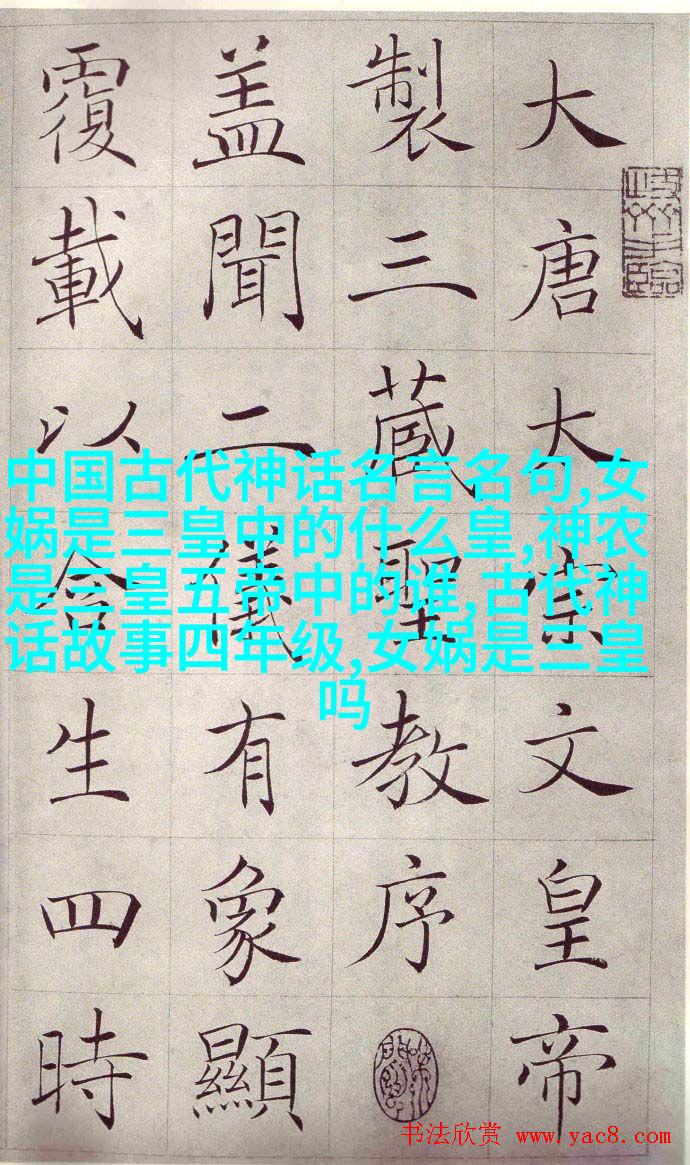 大唐大宗文皇帝
製三藏聖教序
盖聞二儀有象顯
覆載以含生四時
中国古代神话名言名句,女
娲是三皇中的什么皇,神农
是三皇五帝中的谁,古代神
话故事四年级,女娲是三皇
吗
书法欣赏 www.yac8.com